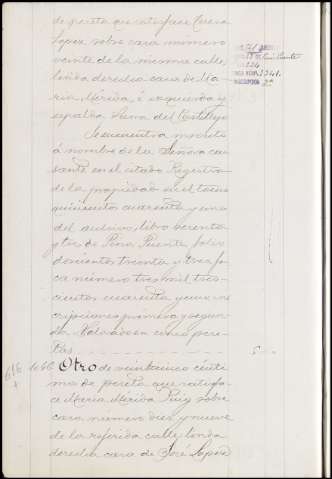 de peseta que satisface Teresa
Lopez sobre casa número
veinte de la misma calle,
linda derecha casa de Ma
ria Mérida, é izquierda y
espalda Sierra del Castillejo
Se encuentra inscrito
á nombre de la Señora cau
sante en el citado Registro
de la propiedad en el tomo
quinientos cuarenta y uno
del archivo, libro ochenta
y tres de Pino Puente, folio
doscientos treinta y tres fin
ca número tres mil tres-
cientos cuarenta y uno ins
cripciones primera y segun
da. Valorado en cinco pese-
tas 5
618 1040 Otro de veinticinco cénti
mos de peseta que satisfa
ce Maria Mérida Ruiz sobre
casa número diez y nueve
de la referida calle, linda
derecha casa de José Lopez